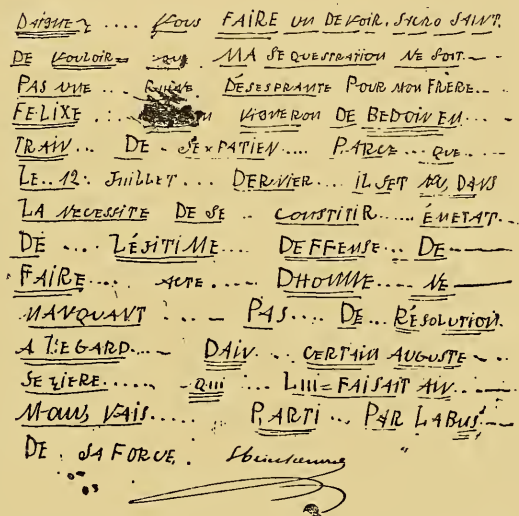 DAIGNEZ .... VOUS FAIRE UN DEVOIR. SACRO SAINT.
DE VOULOIR = QUE MA SEQUESTRATION NE SOIT...
PAS UNE .. RUINE. DESESPRANTE POUR MON FRÈRE...
FELIXE ... VIGNERON DE BEDOIN EN....
TRAIN... DE . SEXPATIEN.... PARCE .... QUE ....
LE.. 12. JUILLET ... DERNIER .... IL SET VU, DANS
LA NECESSITE DE SE .. CONSTITIR..... ÉMETAT..
DE .... LÉJITIME.... DEFFENSE... DE
FAIRE..... ACTE ..... DHOMME.... NE
MANQUANT .... PAS.... DE... RÉSOLUTION.
A LEGARD..... DAIN... CERTAIN AUGUSTE...
SELIERE..... QUI .... LUI = FAISAIT AN....
MAUVAIS..... PARTI ... PAR LABUS
DE . SA FORCE.